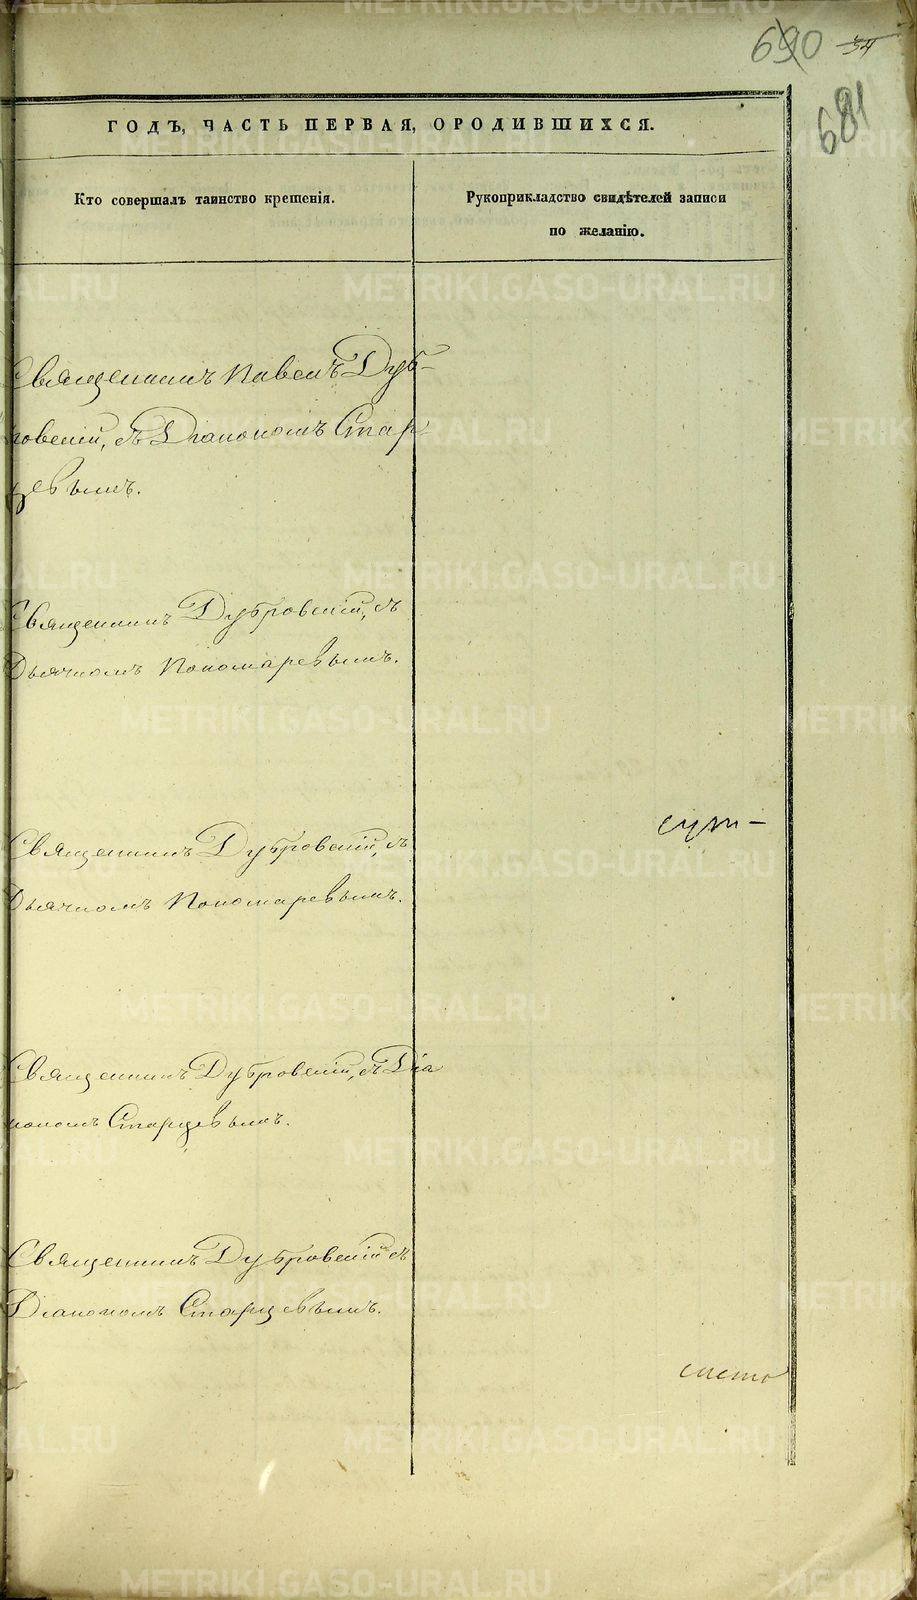 690 34
681
ГОДЪ, ЧАСТЬ ПЕРВАЯ, О РОДИВШИХСЯ.
Кто совершалъ таинство крещенія.
Рукоприкладство свидѣтелей записи
по желанію.
Священникъ Павелъ Дуб-
ровскій, съ Діакономъ Стар-
цевымъ.
Священникъ Дубровскій, съ
Дьячкомъ Пономаревымъ.
Священникъ Дубровскій, съ
Дьячкомъ Пономаревымъ.
Священникъ Дубровскій, съ Діа
кономъ Старцевымъ.
Священникъ Дубровскій съ
Діакономъ Старцевымъ.
METRIKI.GASO-URAL.RU